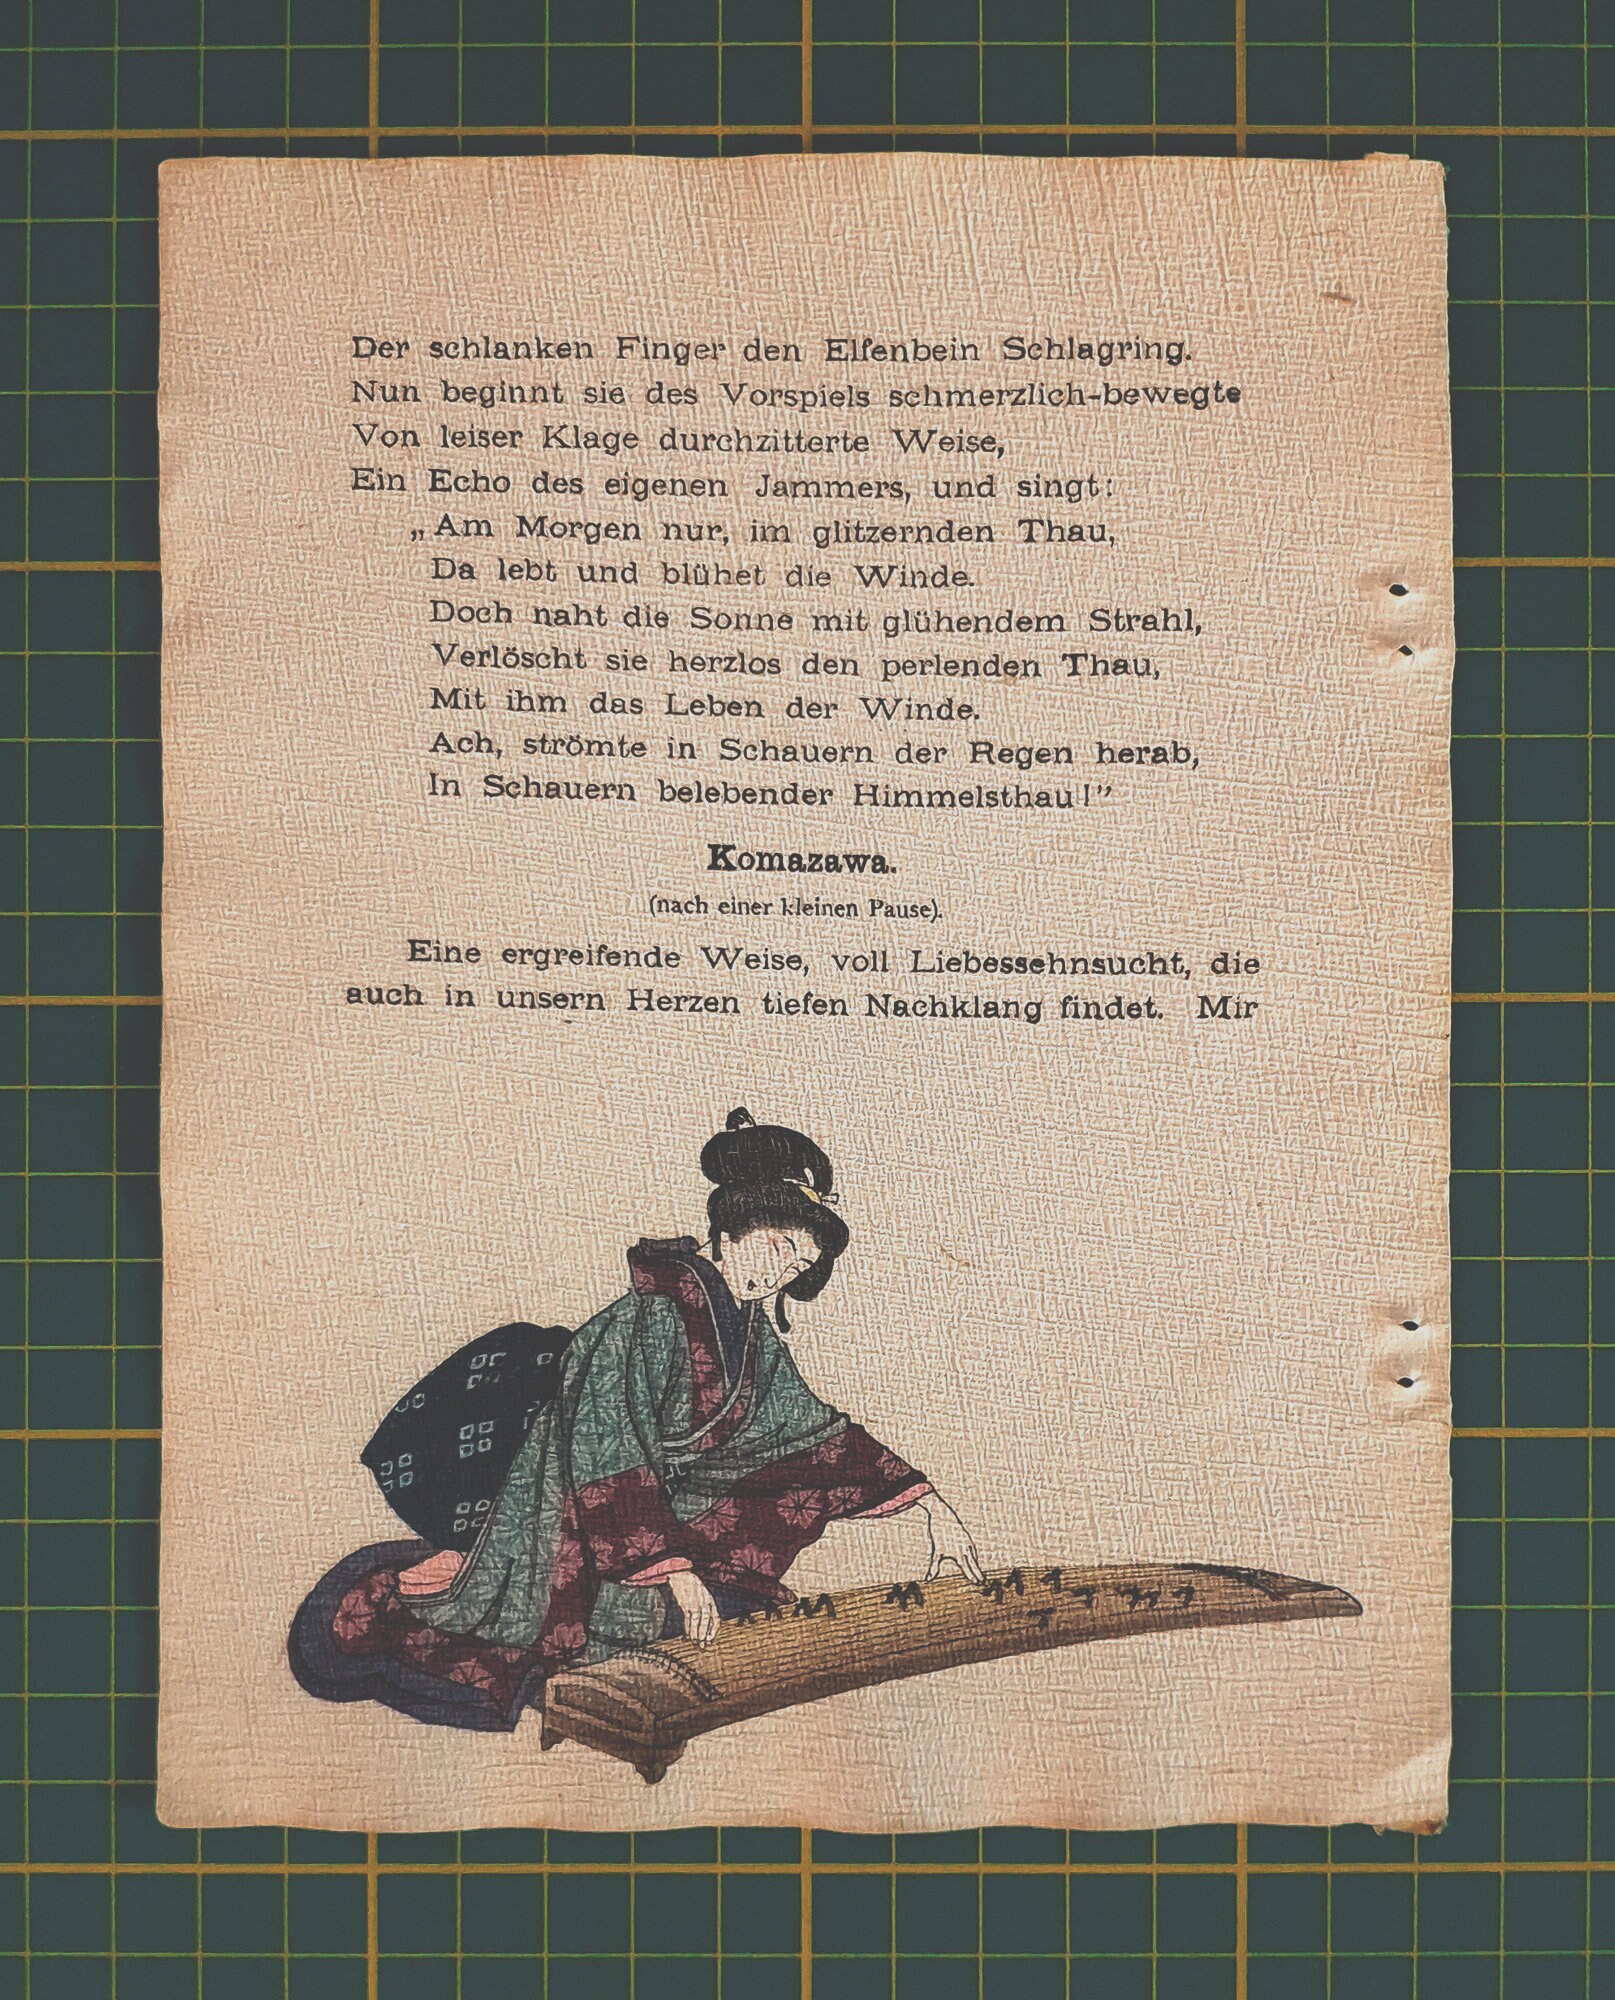 Der schlanken Finger den Elfenbein Schlagring.
Nun beginnt sie des Vorspiels schmerzlich-bewegte
Von leiser Klage durchzitterte Weise,
Ein Echo des eigenen Jammers, und singt:
„Am Morgen nur, im glitzernden Thau,
Da lebt und blühet die Winde.
Doch naht die Sonne mit glühendem Strahl,
Verlöscht sie herzlos den perlenden Thau,
Mit ihm das Leben der Winde.
Ach, strömte in Schauern der Regen herab,
In Schauern belebender Himmelsthau!”
Komazawa.
(nach einer kleinen Pause).
Eine ergreifende Weise, voll Liebessehnsucht, die
auch in unsern Herzen tiefen Nachklang findet. Mir